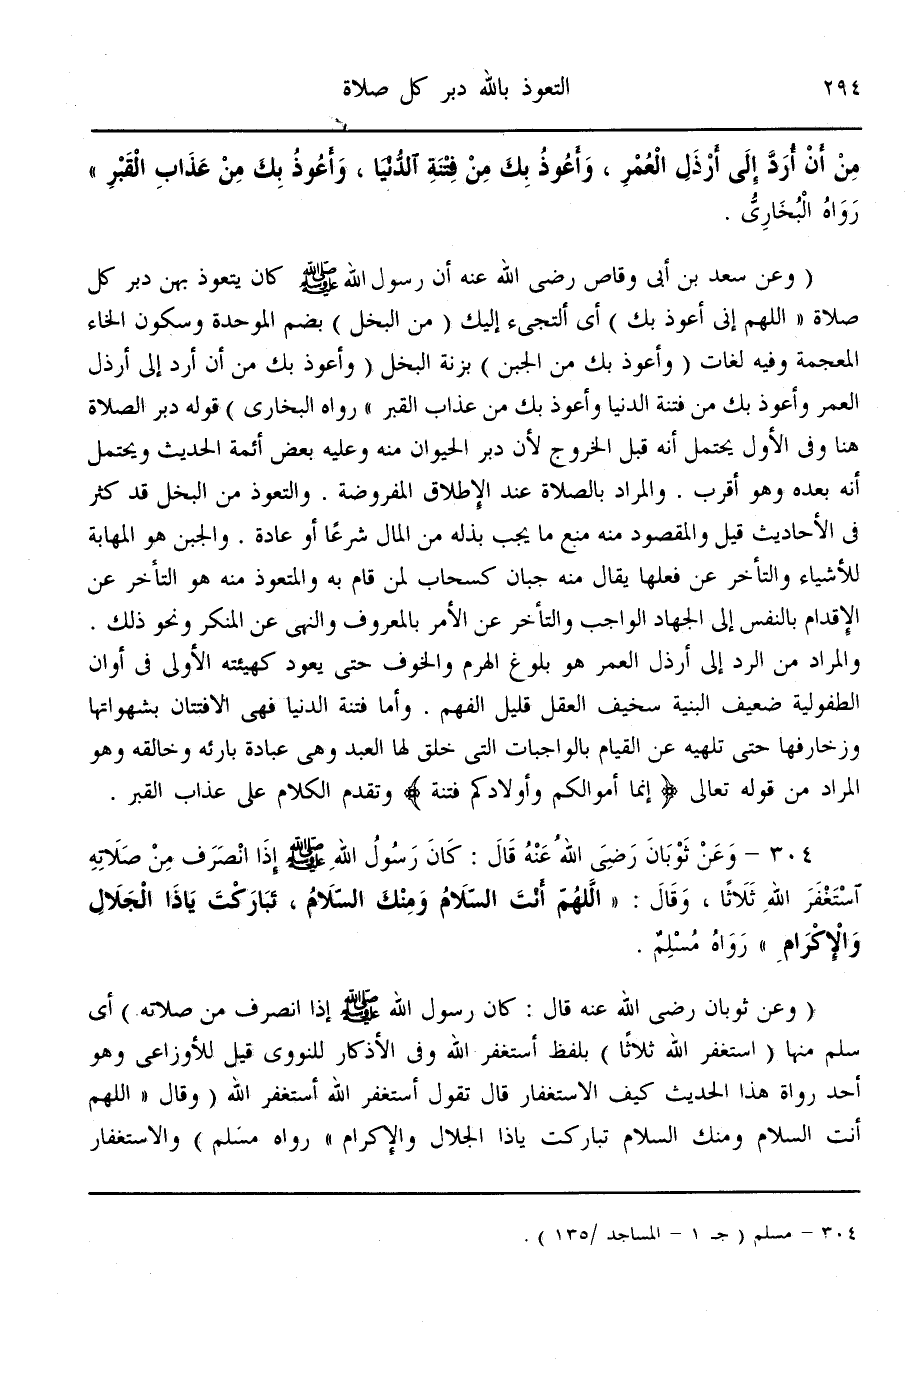 ٢٩٤ التعوذ بالله دبر كل صلاة
مِنْ أَنْ أُرَدَّ إِلَى أَرْذَلِ الْعُمْرِ ، وَأَعُوذُ بِكَ مِنْ فِتْنَةِ ٱلدُّنْيَا ، وَأَعُوذُ بِكَ مِنْ عَذَابِ الْقَبْرِ »
رَوَاهُ الْبُخَارِىُّ .
( وعن سعد بن أبى وقاص رضى الله عنه أن رسول الله ﷺ كان يتعوذ بهن دبر كل
صلاة « اللهم إنى أعوذ بك ) أى ألتجىء إليك ( من البخل ) بضم الموحدة وسكون الخاء
المعجمة وفيه لغات ( وأعوذ بك من الجبن ) بزنة البخل ( وأعوذ بك من أن أرد إلى أرذل
العمر وأعوذ بك من فتنة الدنيا وأعوذ بك من عذاب القبر » رواه البخارى ) قوله دبر الصلاة
هنا وفى الأول يحتمل أنه قبل الخروج لأن دبر الحيوان منه وعليه بعض أئمة الحديث ويحتمل
أنه بعده وهو أقرب . والمراد بالصلاة عند الإطلاق المفروضة . والتعوذ من البخل قد كثر
فى الأحاديث قيل والمقصود منه منع ما يجب بذله من المال شرعًا أو عادة . والجبن هو المهابة
للأشياء والتأخر عن فعلها يقال منه جبان كسحاب لمن قام به والمتعوذ منه هو التأخر عن
الإقدام بالنفس إلى الجهاد الواجب والتأخر عن الأمر بالمعروف والنهى عن المنكر ونحو ذلك .
والمراد من الرد إلى أرذل العمر هو بلوغ الهرم والخوف حتى يعود كهيئته الأولى فى أوان
الطفولية ضعيف البنية سخيف العقل قليل الفهم . وأما فتنة الدنيا فهى الافتتان بشهواتها
وزخارفها حتى تلهيه عن القيام بالواجبات التى خلق لها العبد وهى عبادة بارئه وخالقه وهو
المراد من قوله تعالى ﴿ إنما أموالكم وأولادكم فتنة ﴾ وتقدم الكلام على عذاب القبر .
٣٠٤ – وَعَنْ ثَوْبَانَ رَضِىَ اللهُ عَنْهُ قَالَ : كَانَ رَسُولُ اللهِ ﷺ إِذَا انْصَرَفَ مِنْ صَلَاتِهِ
ٱسْتَغْفَرَ اللهَ ثَلَاثًا ، وَقَالَ : « اللَّهُمَّ أَنْتَ السَّلَامُ وَمِنْكَ السَّلَامُ ، تَبَارَكْتَ يَاذَا الْجَلَالِ
وَالْإِكْرَامِ » رَوَاهُ مُسْلِمٌ .
( وعن ثوبان رضى الله عنه قال : كان رسول الله ﷺ إذا انصرف من صلاته ) أى
سلم منها ( استغفر الله ثلاثًا ) بلفظ أستغفر الله وفى الأذكار للنووى قيل للأوزاعى وهو
أحد رواة هذا الحديث كيف الاستغفار قال تقول أستغفر الله أستغفر الله ( وقال « اللهم
أنت السلام ومنك السلام تباركت ياذا الجلال والإكرام » رواه مسلم ) والاستغفار
٣٠٤ – مسلم ( جـ ١ – المساجد /١٣٥ ) .